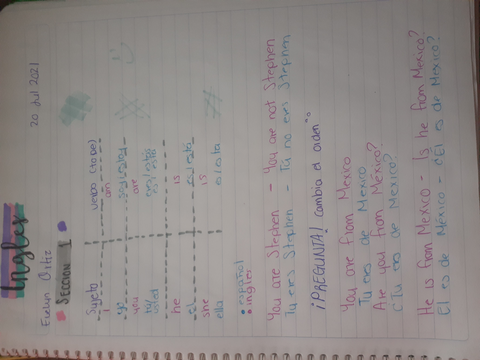 20 Jul 2021
Ingles
Evelyn Ortiz
SECCION 1
Sujeto verbo (to be)
I am
yo soy/estoy
you are
tu/usted eres/estas
he is
el es/esta
she is
ella es/esta
español
ingles
You are Stephen - You are not Stephen
Tu eres Stephen - Tu no eres Stephen
¡PREGUNTA! cambia el orden
You are from Mexico
Tu eres de México
Are you from México?
¿Tu eres de México?
He is from Mexico - Is he from Mexico?
El es de México - ¿El es de México?